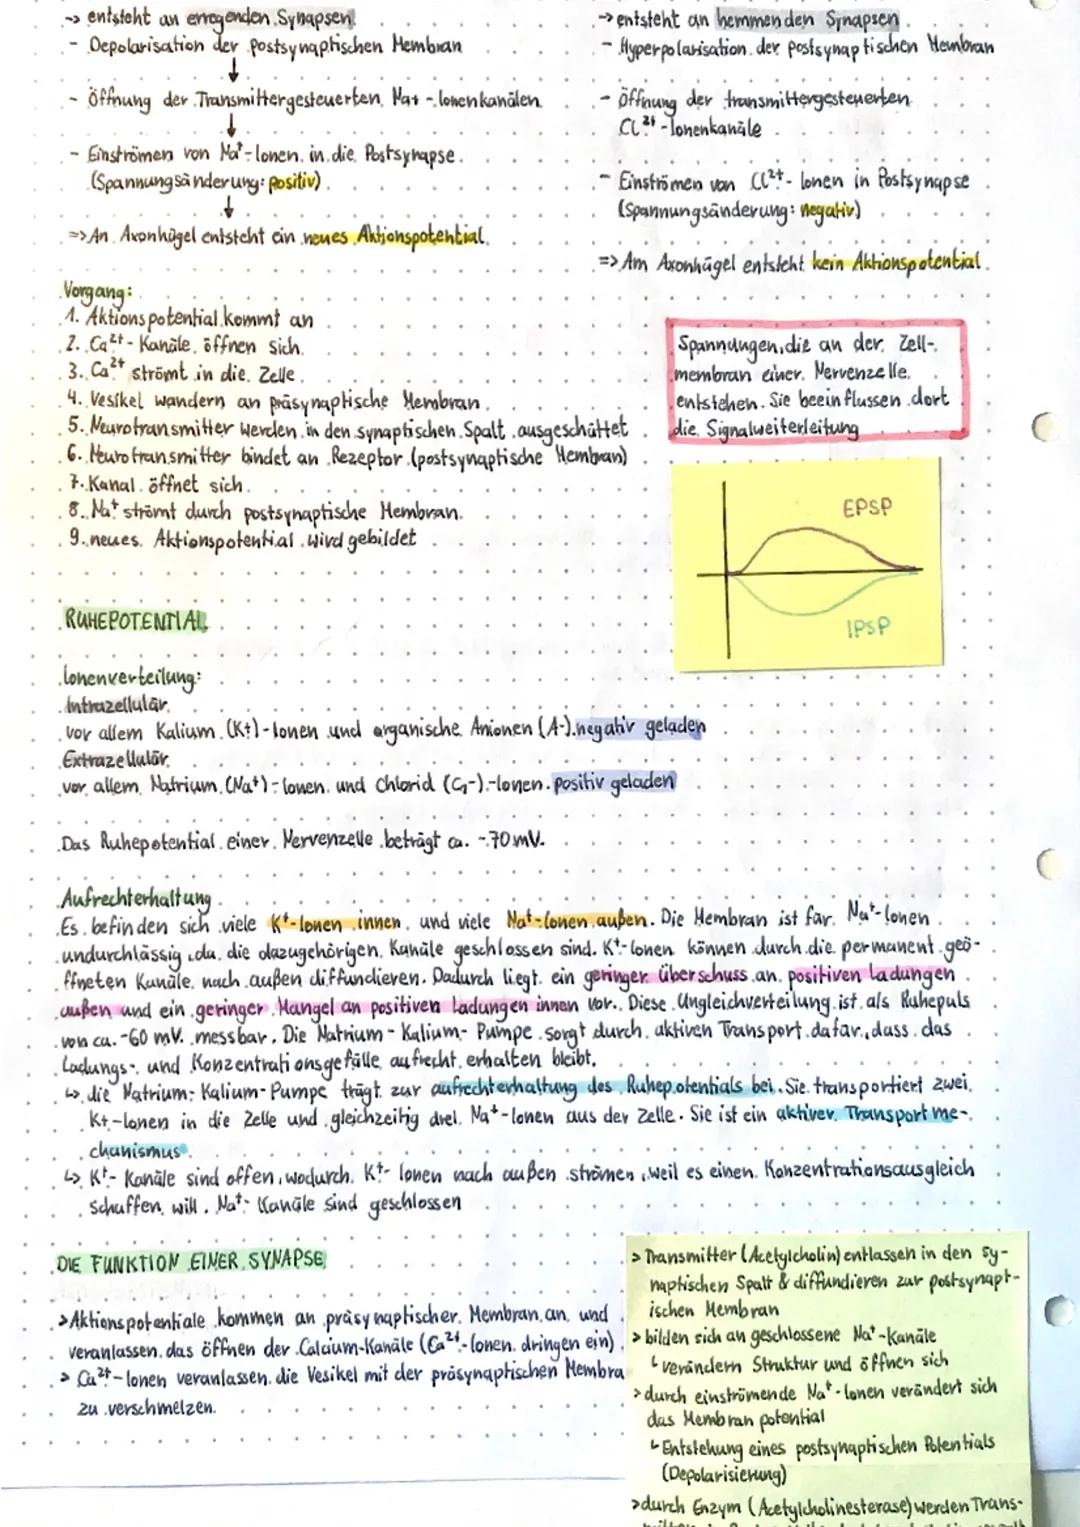 → entsteht an erregenden Synapsen
- Depolarisation der postsynaptischen Membran
↓
- Öffnung der Transmittergesteuerten Na+ -Ionenkanälen
↓
- Einströmen von Na⁺-Ionen in die Postsynapse.
(Spannungsänderung: positiv)
↓
=> An Axonhügel entsteht ein neues Aktionspotential.
→ entsteht an hemmenden Synapsen
- Hyperpolarisation der postsynaptischen Membran
- Öffnung der transmittergesteuerten
Cl²⁺-Ionenkanäle
- Einströmen von Cl²⁺- Ionen in Postsynapse
(Spannungsänderung: negativ)
=> Am Axonhügel entsteht kein Aktionspotential.
Vorgang:
1. Aktionspotential kommt an
2. Ca²⁺- Kanäle öffnen sich.
3. Ca²⁺ strömt in die Zelle
4. Vesikel wandern an präsynaptische Membran.
5. Neurotransmitter werden in den synaptischen Spalt ausgeschüttet
6. Neurotransmitter bindet an Rezeptor (postsynaptische Membran)
7. Kanal öffnet sich.
8. Na⁺ strömt durch postsynaptische Membran.
9. neues Aktionspotential wird gebildet
Spannungen, die an der Zell-
membran einer Nervenzelle
entstehen. Sie beeinflussen dort
die Signalweiterleitung
EPSP
IPSP
RUHEPOTENTIAL
Ionenverteilung:
Intrazellulär
vor allem Kalium (K+)-Ionen und organische Anionen (A-) negativ geladen
Extrazellulär
vor allem Natrium (Na⁺)-Ionen und Chlorid (Cl-)-Ionen positiv geladen
Das Ruhepotential einer Nervenzelle beträgt ca. -70mV.
Aufrechterhaltung
Es befinden sich viele K⁺-Ionen innen und viele Na⁺-Ionen außen. Die Membran ist für Na⁺-Ionen
undurchlässig, da die dazugehörigen Kanäle geschlossen sind. K⁺-Ionen können durch die permanent geö-
ffneten Kanäle nach außen diffundieren. Dadurch liegt ein geringer überschuss an positiven Ladungen
außen und ein geringer Mangel an positiven Ladungen innen vor. Diese Ungleichverteilung ist als Ruhepuls
von ca. -60 mV messbar. Die Natrium-Kalium-Pumpe sorgt durch aktiven Transport dafür, dass das
Ladungs- und Konzentrationsgefälle aufrecht erhalten bleibt.
↳ die Natrium-Kalium-Pumpe trägt zur aufrechterhaltung des Ruhepotentials bei. Sie transportiert zwei
K+-Ionen in die Zelle und gleichzeitig drei Na⁺-Ionen aus der Zelle. Sie ist ein aktiver Transportme-
chanismus.
↳ K⁺- Kanäle sind offen, wodurch K⁺- Ionen nach außen strömen, weil es einen Konzentrationsausgleich
schaffen will. Na⁺- Kanäle sind geschlossen
DIE FUNKTION EINER SYNAPSE
> Aktionspotentiale kommen an präsynaptischer Membran an und
veranlassen das öffnen der Calcium-Kanäle (Ca²⁺-Ionen dringen ein).
> Ca²⁺-Ionen veranlassen die Vesikel mit der präsynaptischen Membra
zu verschmelzen.
> Transmitter (Acetylcholin) entlassen in den sy-
naptischen Spalt & diffundieren zur postsynapt-
ischen Membran
> bilden sich an geschlossene Na⁺-Kanäle
↳ verändern Struktur und öffnen sich
> durch einströmende Na⁺-Ionen verändert sich
das Membranpotential
↳ Entstehung eines postsynaptischen Potentials
(Depolarisierung)
> durch Enzym (Acetylcholinesterase) werden Trans-